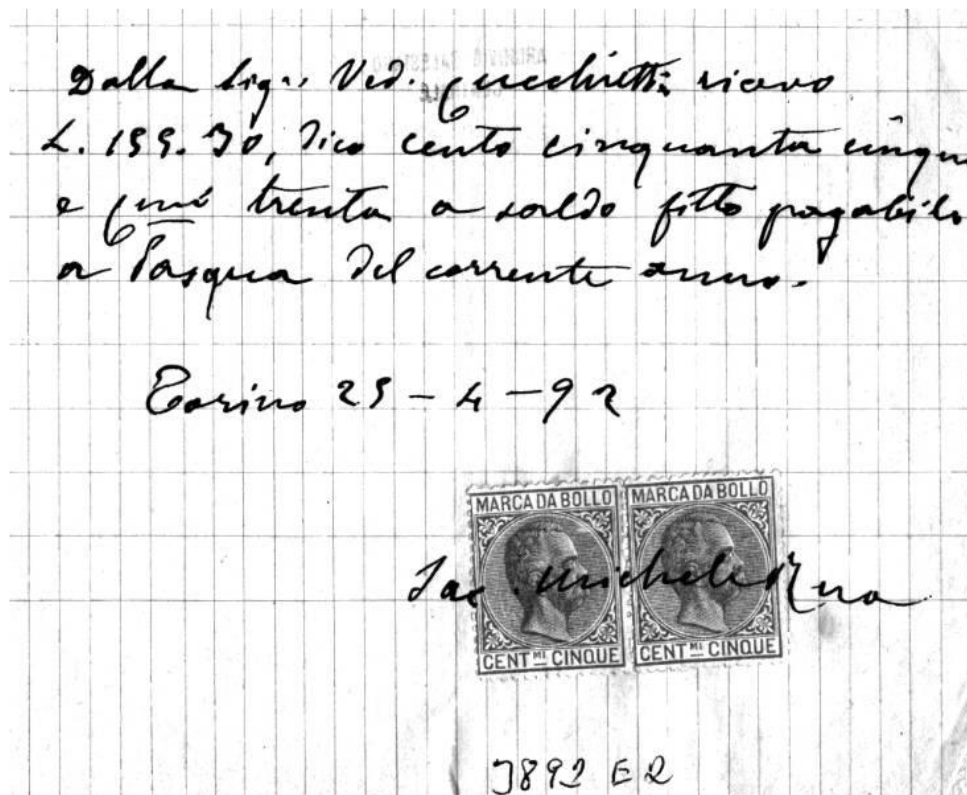 Dalla Sig.ra Ved. Cucchietti ricevo
L. 155.30, dico cento cinquanta cinque
e cmi trenta a saldo fitto pagabile
a Pasqua del corrente anno.
Torino 25 - 4 - 92
MARCA DA BOLLO MARCA DA BOLLO
Sac. Michele Rua
CENT MI CINQUE CENT MI CINQUE
3892 E 2